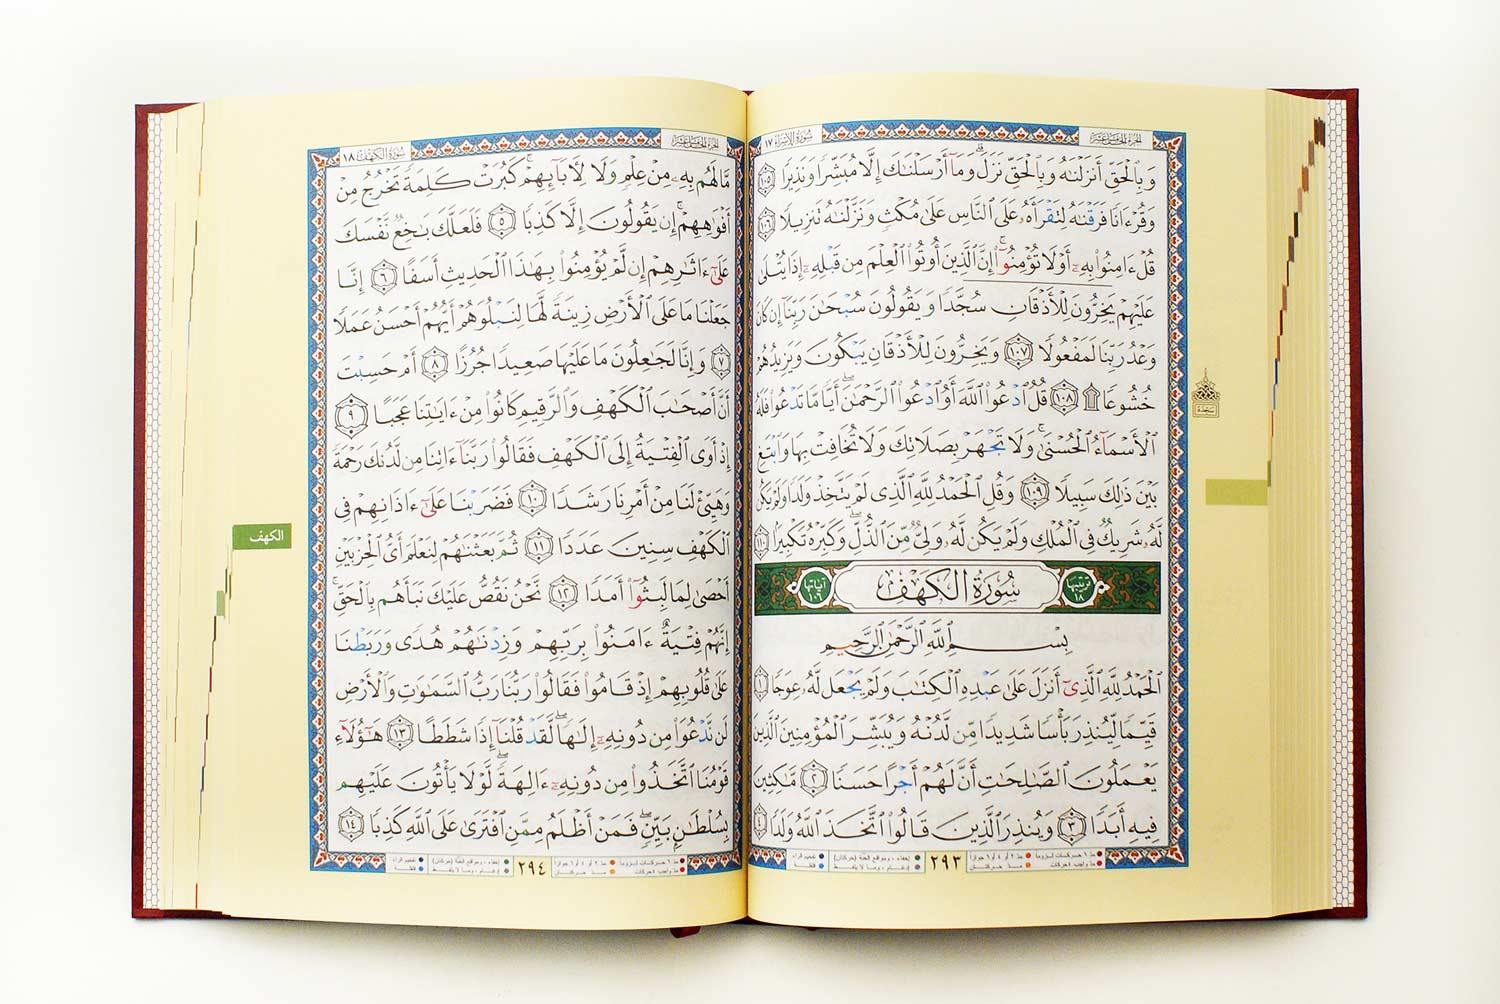 سورة الإسراء ١٧
الجزء الخامس عشر
وَبِٱلْحَقِّ أَنزَلْنَٰهُ وَبِٱلْحَقِّ نَزَلَ وَمَآ أَرْسَلْنَٰكَ إِلَّا مُبَشِّرًا وَنَذِيرًا ١٠٥
وَقُرْءَانًا فَرَقْنَٰهُ لِتَقْرَأَهُۥ عَلَى ٱلنَّاسِ عَلَىٰ مُكْثٍ وَنَزَّلْنَٰهُ تَنزِيلًا ١٠٦
قُلْ ءَامِنُوا۟ بِهِۦٓ أَوْ لَا تُؤْمِنُوٓا۟ ۚ إِنَّ ٱلَّذِينَ أُوتُوا۟ ٱلْعِلْمَ مِن قَبْلِهِۦٓ إِذَا يُتْلَىٰ
عَلَيْهِمْ يَخِرُّونَ لِلْأَذْقَانِ سُجَّدًا وَيَقُولُونَ سُبْحَٰنَ رَبِّنَآ إِن كَانَ
وَعْدُ رَبِّنَا لَمَفْعُولًا ١٠٧ وَيَخِرُّونَ لِلْأَذْقَانِ يَبْكُونَ وَيَزِيدُهُمْ
خُشُوعًا ۩ ١٠٨ قُلِ ٱدْعُوا۟ ٱللَّهَ أَوِ ٱدْعُوا۟ ٱلرَّحْمَٰنَ ۖ أَيًّا مَّا تَدْعُوا۟ فَلَهُ
ٱلْأَسْمَآءُ ٱلْحُسْنَىٰ ۚ وَلَا تَجْهَرْ بِصَلَاتِكَ وَلَا تُخَافِتْ بِهَا وَٱبْتَغِ
بَيْنَ ذَٰلِكَ سَبِيلًا ١٠٩ وَقُلِ ٱلْحَمْدُ لِلَّهِ ٱلَّذِى لَمْ يَتَّخِذْ وَلَدًا وَلَمْ يَكُن
لَّهُۥ شَرِيكٌ فِى ٱلْمُلْكِ وَلَمْ يَكُن لَّهُۥ وَلِىٌّ مِّنَ ٱلذُّلِّ ۖ وَكَبِّرْهُ تَكْبِيرًا ١١٠
سجدة
ترتيبها ١٨
سُورَةُ الكَهْفِ
آياتها ١٠٦
بِسْمِ ٱللَّهِ ٱلرَّحْمَٰنِ ٱلرَّحِيمِ
ٱلْحَمْدُ لِلَّهِ ٱلَّذِىٓ أَنزَلَ عَلَىٰ عَبْدِهِ ٱلْكِتَٰبَ وَلَمْ يَجْعَل لَّهُۥ عِوَجَا ١
قَيِّمًا لِّيُنذِرَ بَأْسًا شَدِيدًا مِّن لَّدُنْهُ وَيُبَشِّرَ ٱلْمُؤْمِنِينَ ٱلَّذِينَ
يَعْمَلُونَ ٱلصَّٰلِحَٰتِ أَنَّ لَهُمْ أَجْرًا حَسَنًا ٢ مَّٰكِثِينَ
فِيهِ أَبَدًا ٣ وَيُنذِرَ ٱلَّذِينَ قَالُوا۟ ٱتَّخَذَ ٱللَّهُ وَلَدًا ٤
مد ٦ حركات لزوماً مد ٢ أو ٤ أو ٦ جوازاً
مد واجب ٤ حركات مد حركتان
٢٩٣
إخفاء، ومواقع الغنة (حركتان) تفخيم الراء
إدغام، وما لا يلفظ قلقلة
سورة الكهف ١٨
الجزء الخامس عشر
مَّا لَهُم بِهِۦ مِنْ عِلْمٍ وَلَا لِءَابَآئِهِمْ ۚ كَبُرَتْ كَلِمَةً تَخْرُجُ مِنْ
أَفْوَٰهِهِمْ ۚ إِن يَقُولُونَ إِلَّا كَذِبًا ٥ فَلَعَلَّكَ بَٰخِعٌ نَّفْسَكَ
عَلَىٰٓ ءَاثَٰرِهِمْ إِن لَّمْ يُؤْمِنُوا۟ بِهَٰذَا ٱلْحَدِيثِ أَسَفًا ٦ إِنَّا
جَعَلْنَا مَا عَلَى ٱلْأَرْضِ زِينَةً لَّهَا لِنَبْلُوَهُمْ أَيُّهُمْ أَحْسَنُ عَمَلًا
٧ وَإِنَّا لَجَٰعِلُونَ مَا عَلَيْهَا صَعِيدًا جُرُزًا ٨ أَمْ حَسِبْتَ
أَنَّ أَصْحَٰبَ ٱلْكَهْفِ وَٱلرَّقِيمِ كَانُوا۟ مِنْ ءَايَٰتِنَا عَجَبًا ٩
إِذْ أَوَى ٱلْفِتْيَةُ إِلَى ٱلْكَهْفِ فَقَالُوا۟ رَبَّنَآ ءَاتِنَا مِن لَّدُنكَ رَحْمَةً
وَهَيِّئْ لَنَا مِنْ أَمْرِنَا رَشَدًا ١٠ فَضَرَبْنَا عَلَىٰٓ ءَاذَانِهِمْ فِى
ٱلْكَهْفِ سِنِينَ عَدَدًا ١١ ثُمَّ بَعَثْنَٰهُمْ لِنَعْلَمَ أَىُّ ٱلْحِزْبَيْنِ
أَحْصَىٰ لِمَا لَبِثُوٓا۟ أَمَدًا ١٢ نَّحْنُ نَقُصُّ عَلَيْكَ نَبَأَهُم بِٱلْحَقِّ ۚ
إِنَّهُمْ فِتْيَةٌ ءَامَنُوا۟ بِرَبِّهِمْ وَزِدْنَٰهُمْ هُدًى ١٣ وَرَبَطْنَا
عَلَىٰ قُلُوبِهِمْ إِذْ قَامُوا۟ فَقَالُوا۟ رَبُّنَا رَبُّ ٱلسَّمَٰوَٰتِ وَٱلْأَرْضِ
لَن نَّدْعُوَا۟ مِن دُونِهِۦٓ إِلَٰهًا ۖ لَّقَدْ قُلْنَآ إِذًا شَطَطًا ١٣ هَٰٓؤُلَآءِ
قَوْمُنَا ٱتَّخَذُوا۟ مِن دُونِهِۦٓ ءَالِهَةً ۖ لَّوْلَا يَأْتُونَ عَلَيْهِم
بِسُلْطَٰنٍۭ بَيِّنٍ ۖ فَمَنْ أَظْلَمُ مِمَّنِ ٱفْتَرَىٰ عَلَى ٱللَّهِ كَذِبًا ١٤
الكهف
مد ٦ حركات لزوماً مد ٢ أو ٤ أو ٦ جوازاً
مد واجب ٤ حركات مد حركتان
٢٩٤
إخفاء، ومواقع الغنة (حركتان) تفخيم الراء
إدغام، وما لا يلفظ قلقلة